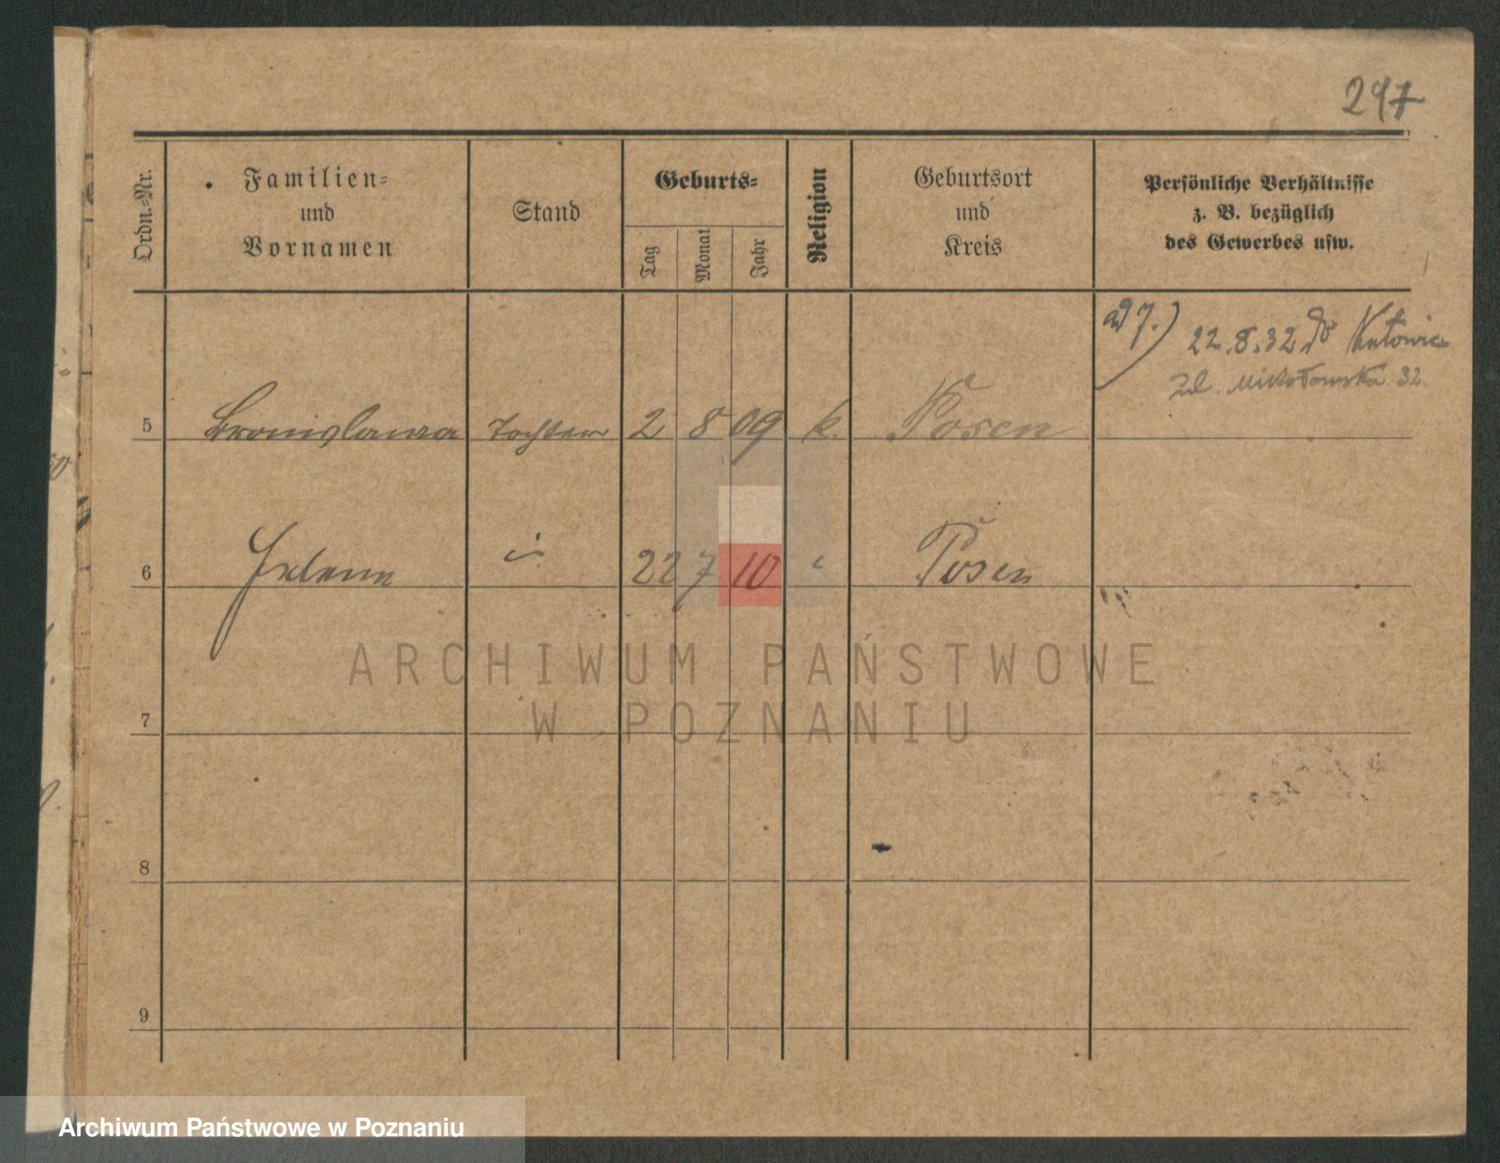 297
Ordn.-Nr.
Familien-
und
Vornamen
Stand
Geburts-
Tag
Monat
Jahr
Religion
Geburtsort
und
Kreis
Persönliche Verhältnisse
z. B. bezüglich
des Gewerbes usw.
ad 7.) 22.8.32 do Katowic
ul. Mikołowska 32.
5 Bronislawa Tochter 2 8 09 k. Posen
6 Helene 22 7 10 Posen
ARCHIWUM PAŃSTWOWE
W POZNANIU
7
8
9
Archiwum Państwowe w Poznaniu